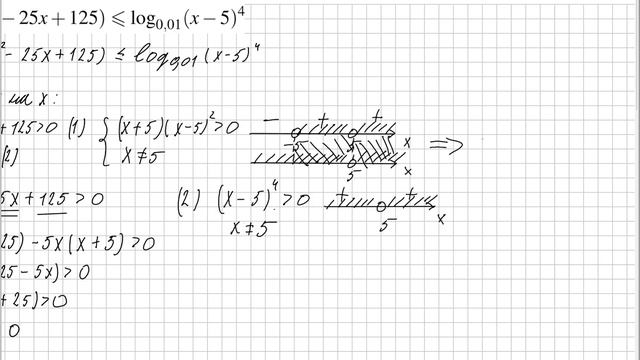 − 25x + 125) ⩽ log₀,₀₁(x − 5)⁴
² − 25x + 125) ≤ log₀,₀₁ (x − 5)⁴
на x:
+ 125 > 0 (1) { (x + 5)(x − 5)² > 0 − + + −5 5 x ⇒
(2) x ≠ 5 5 x
5x + 125 > 0 (2) (x − 5)⁴ > 0 + + 5 x
x ≠ 5
25) − 5x(x + 5) > 0
25 − 5x) > 0
+ 25) > 0
0